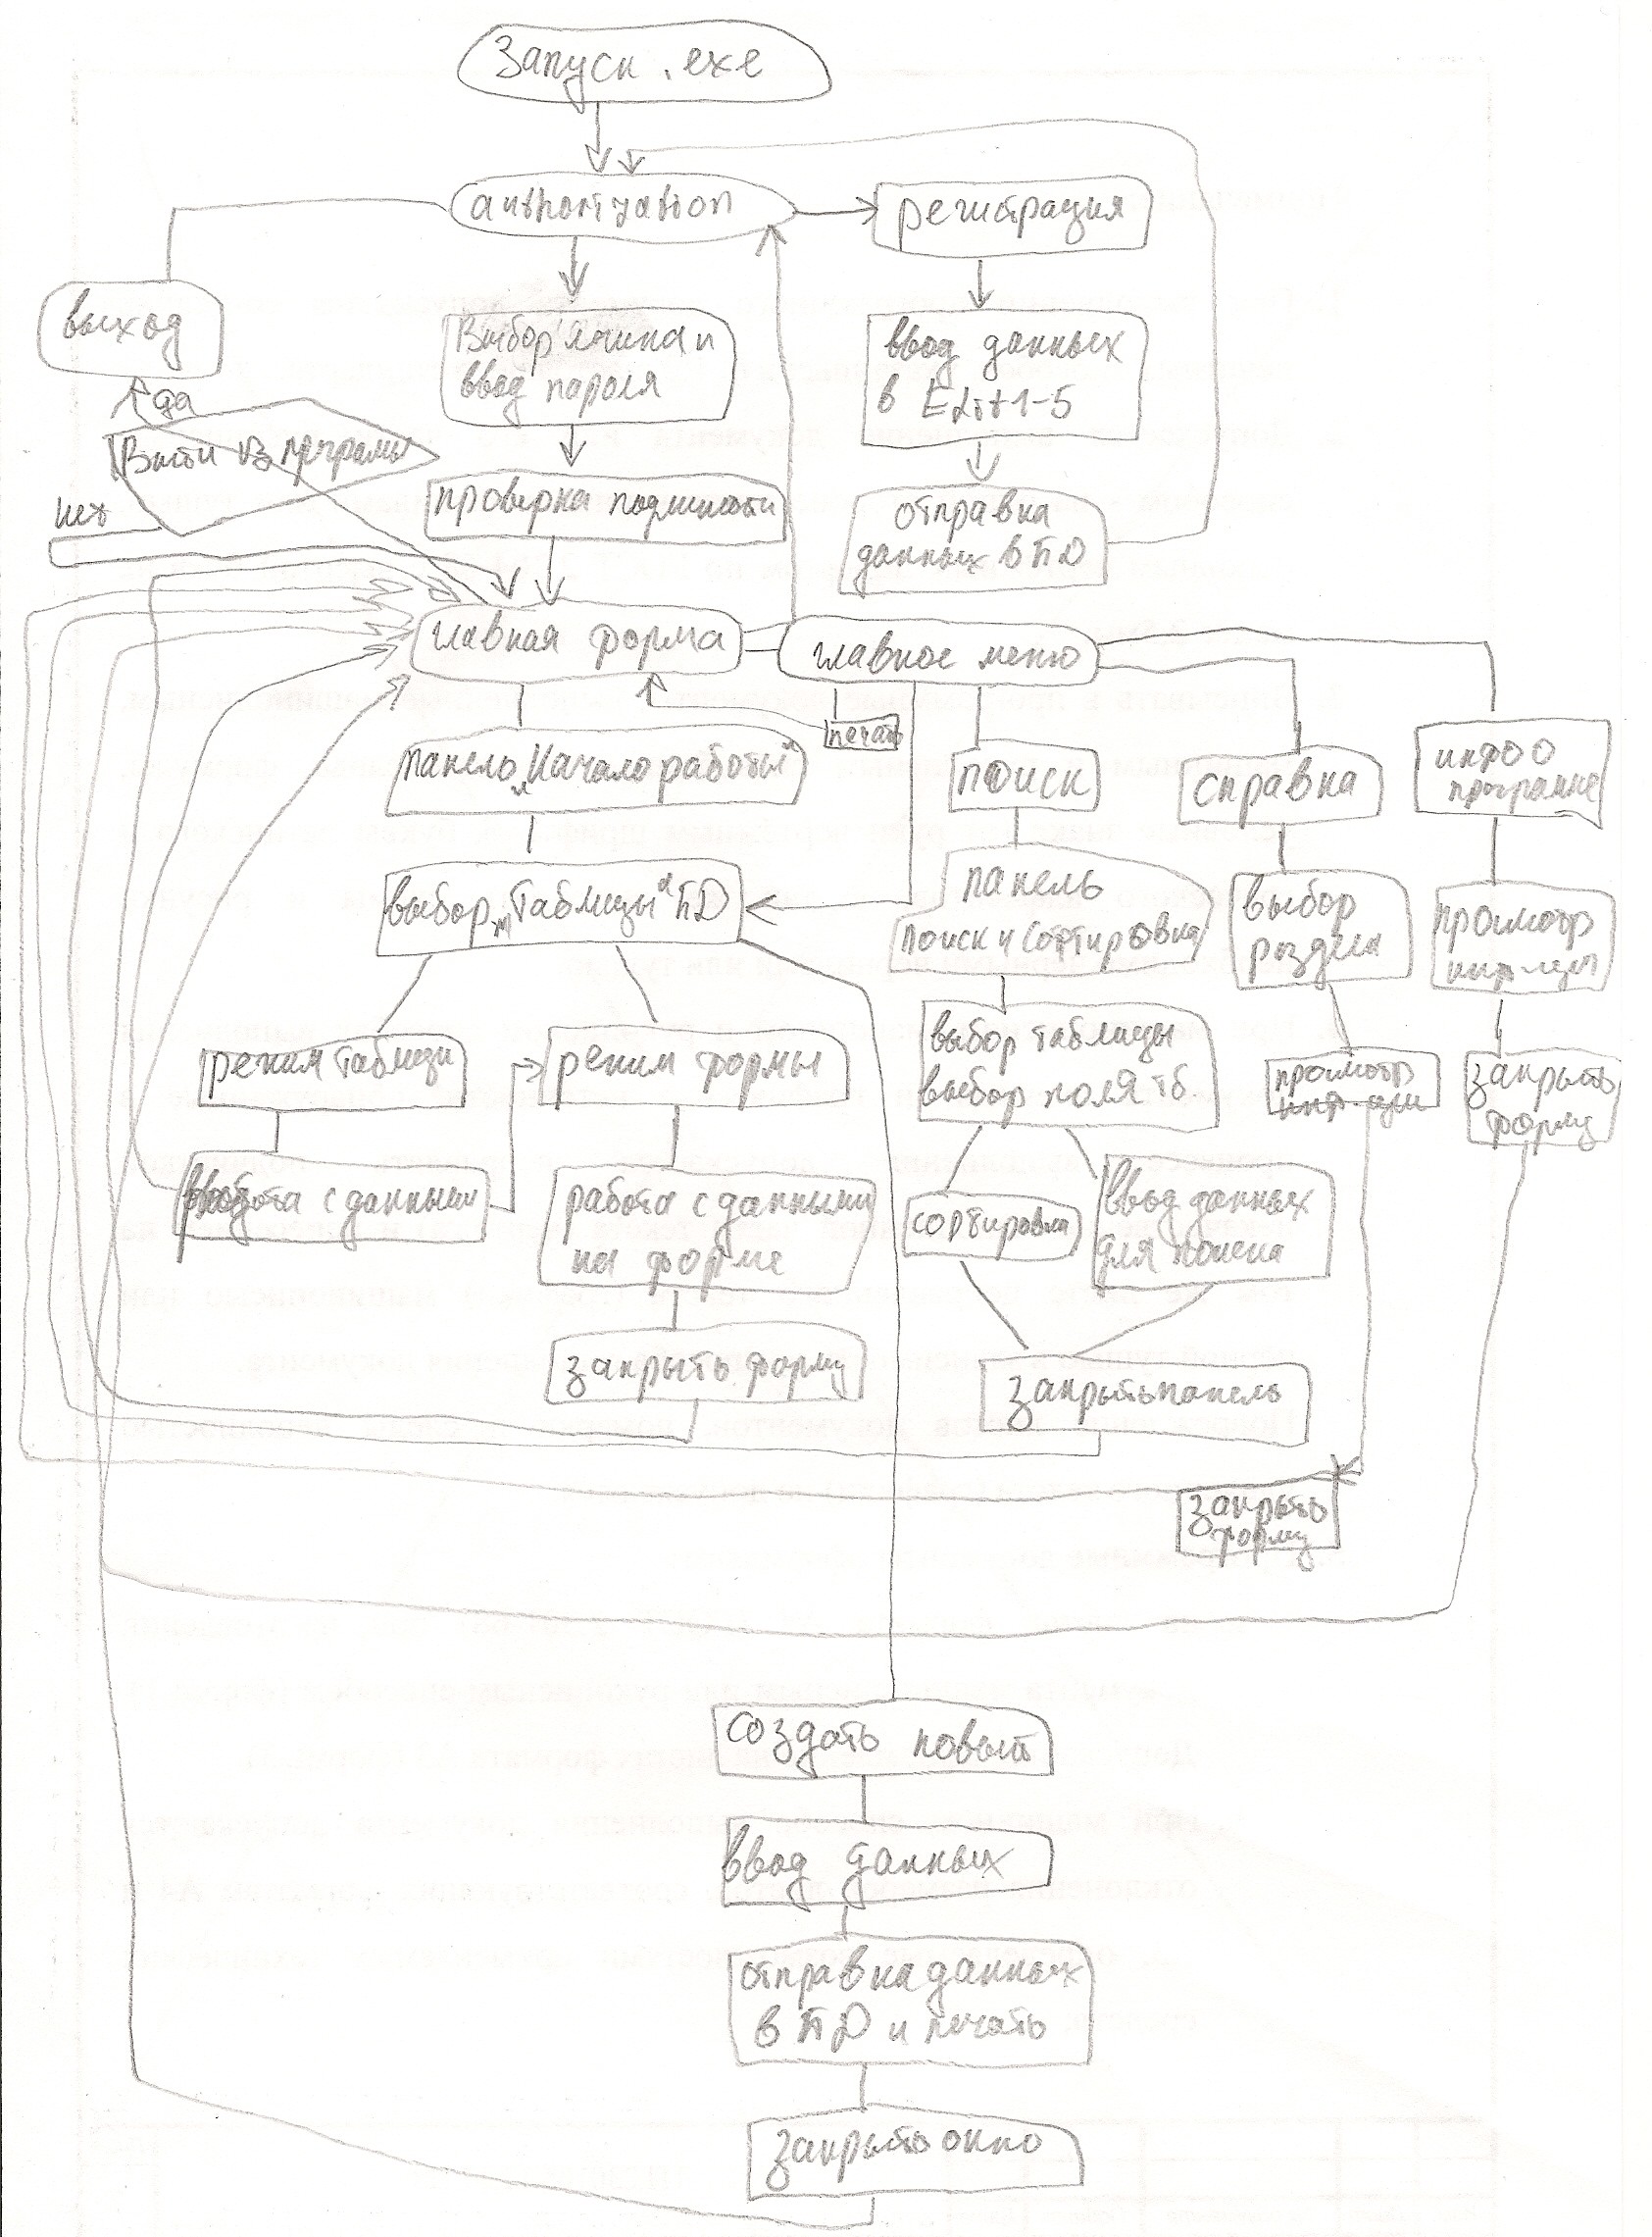 Запуск .exe
authorization
регистрация
выход
Выбор логина и
ввод пароля
ввод данных
в Edit 1-5
да
Выйти из програмы
нет
проверка подлиности
отправка
данных в БД
главная форма
главное меню
печать
панель „Начало работы“
поиск
справка
инфо о
програмне
выбор „Таблицы“ БД
панель
поиск и сортировка
выбор
раздела
просмотр
режим таблици
режим формы
выбор таблицы
выбор поля тб.
просмотр
закрыть
форму
работа с данными
работа с данными
на форме
сортировка
ввод данных
для поиска
закрыть форму
закрыть панель
закрыть
форму
создать новый
ввод данных
отправка данных
в БД и печать
закрыть окно